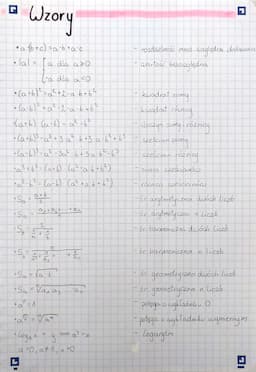 Wzory
• a·(b+c)=a·b+a·c - rozdzielność mnoż. względem dodawania
• |a| = { a dla a≥0 - wartość bezwzględna
-a dla a<0
• (a+b)²=a²+2·a·b+b² - kwadrat sumy
• (a-b)²=a²-2·a·b+b² - kwadrat różnicy
• (a+b)·(a-b)=a²-b² - iloczyn sumy i różnicy
• (a+b)³=a³+3·a²·b+3·a·b²+b³ - sześcian sumy
• (a-b)³=a³-3a²·b+3·a·b²-b³ - sześcian różnicy
• a³+b³=(a+b)·(a²-a·b+b²) - suma sześcianów
• a³-b³=(a-b)·(a²+a·b+b²) - różnica sześcianów
- śr. arytmetyczna dwóch liczb
- śr. arytmetyczna n liczb
- śr. harmoniczna dwóch liczb
- śr. harmoniczna n liczb
- śr. geometryczna dwóch liczb
- śr. geometryczna n liczb
• a⁰=1 - potęga o wykładniku 0
- potęga o wykładniku wymiernym
- logarytm